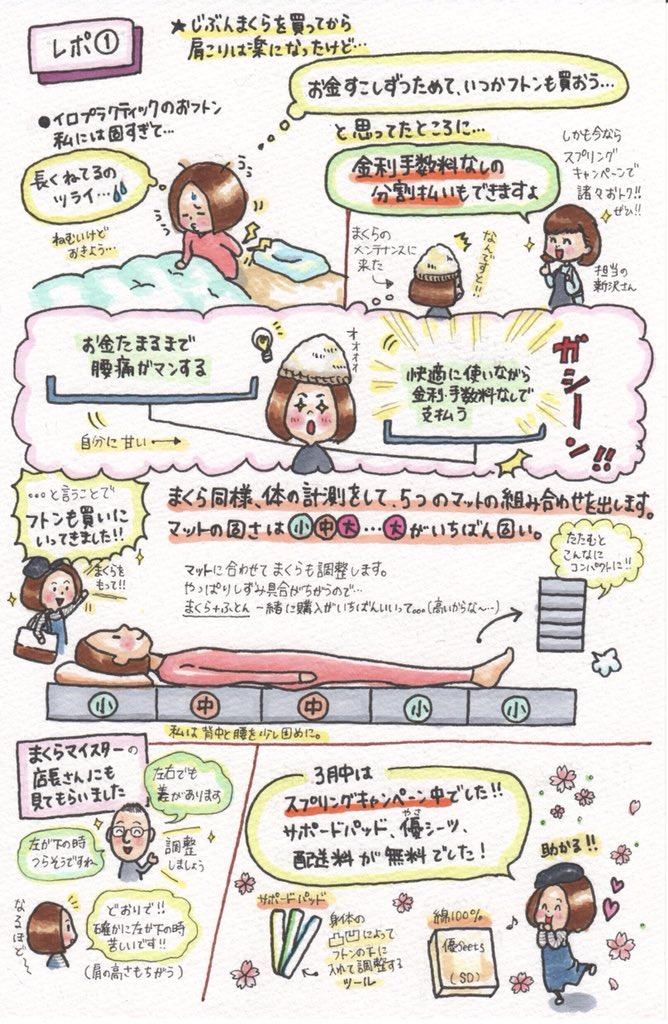 レポ①
★じぶんまくらを買ってから
肩こりは楽になったけど…
お金すこしずつためて、いつかフトンも買おう…
●イロプラクティックのおフトン
私には固すぎて…
長くねてるの
ツライ…
ねむいけど
おきよう…
と思ってたところに…
金利手数料なしの
分割払いもできますよ
しかも今なら
スプリング
キャンペーンで
諸々おトク!!
ぜひ!!
まくらの
メンテナンスに
来た
なんですと!!
担当の
新沢さん
お金たまるまで
腰痛がマンする
オオオオ
快適に使いながら
金利・手数料なしで
支払う
ガシーン!!
自分に甘い→
…と言うことで
フトンも買いに
いってきました!!
まくらを
もって!!
まくら同様、体の計測をして、5つのマットの組み合わせを出します。
マットの固さは小中大…大がいちばん固い。
マットに合わせてまくらも調整します。
やっぱりしずみ具合がちがうので…
まくら+ふとん一緒に購入がいちばんいいって…(高いからな〜…)
たたむと
こんなに
コンパクトに!!
小 中 中 小 小
私は背中と腰を少し固めに。
まくらマイスターの
店長さんにも
見てもらいました
左右でも
差があります
左が下の時
つらそうですね
調整
しましょう
なるほど〜
どおりで!!
確かに左が下の時
苦しいです!!
(肩の高さもちがう)
3月中は
スプリングキャンペーン中でした!!
サポートパッド、優シーツ、
やさ
配送料が無料でした!
助かる!!
サポートパッド
身体の
凸凹によって
フトンの下に
入れて調整する
ツール
綿100%
優Seets
(SD)